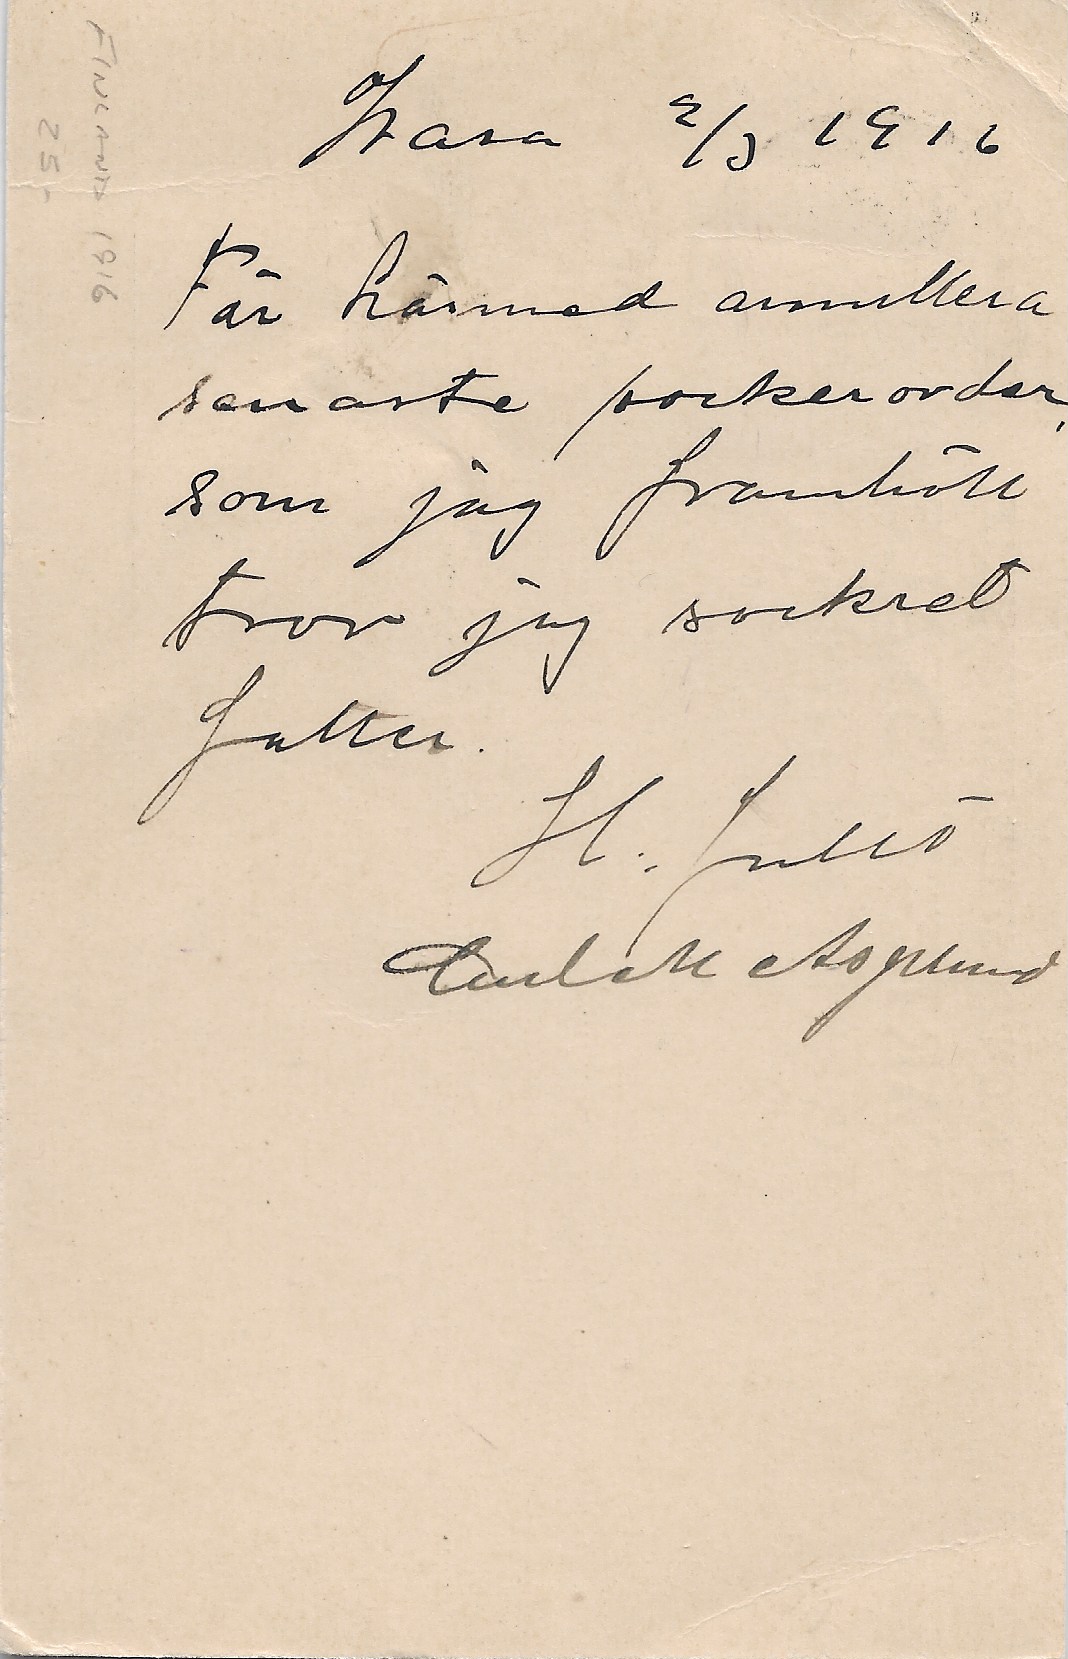 Wasa 2/3 1916
Får härmed annullera
senaste sockerorder,
som jag framhöll
tror jag sockret
faller.
H.
Carl M Asplund
FINLAND 1916
25-